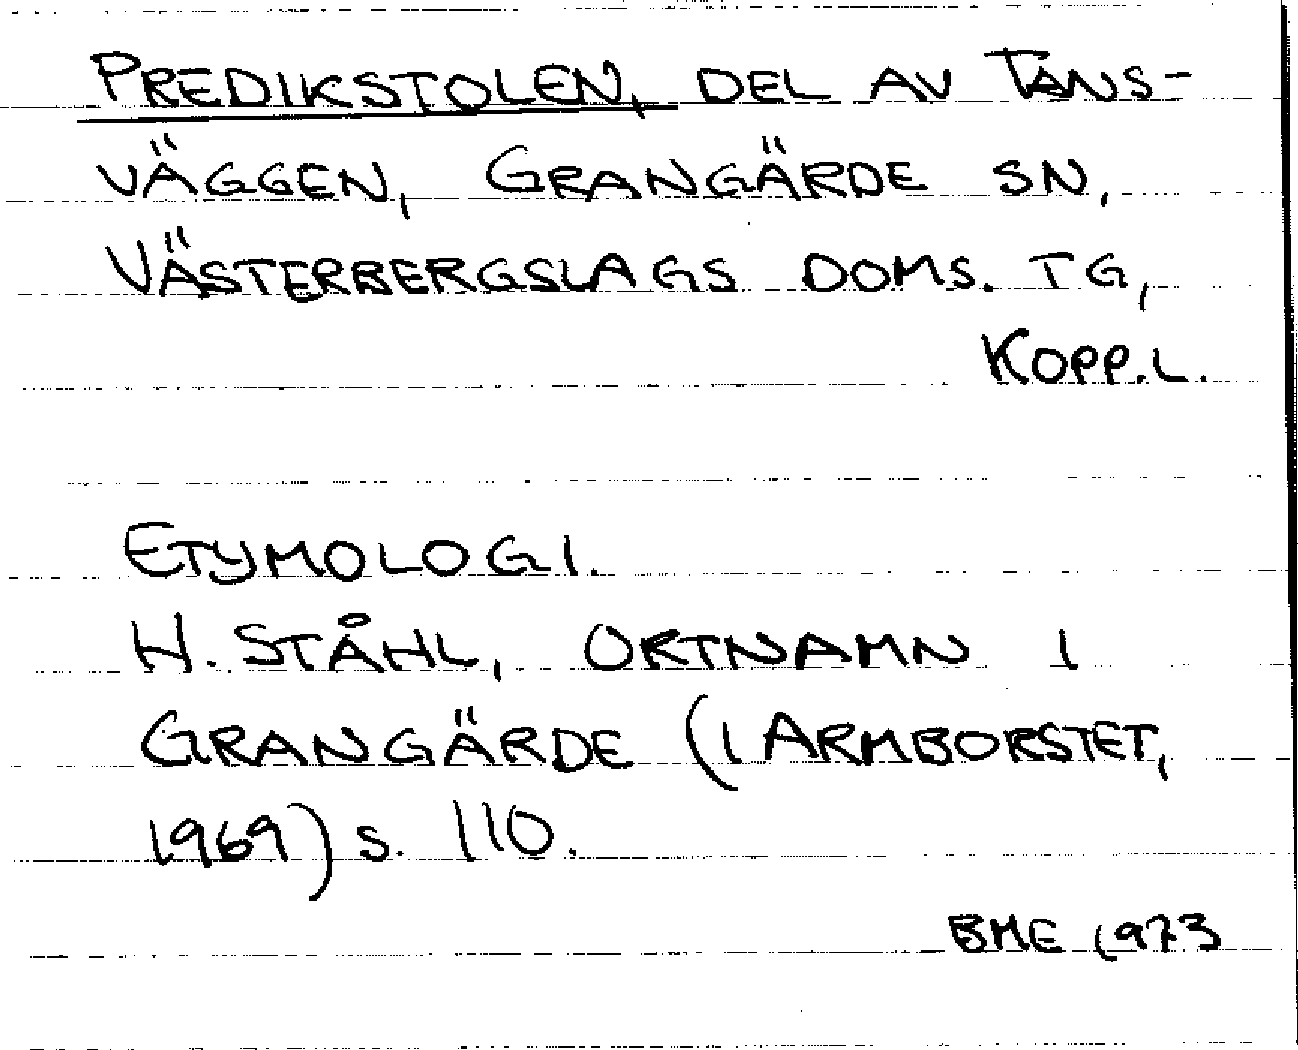 PREDIKSTOLEN, DEL AV TANS-
VÄGGEN, GRANGÄRDE SN,
VÄSTERBERGSLAGS DOMS. TG,
KOPP.L.
ETYMOLOGI.
H. STÅHL, ORTNAMN I
GRANGÄRDE (I ARMBORSTET,
1969) S. 110.
BME 1973